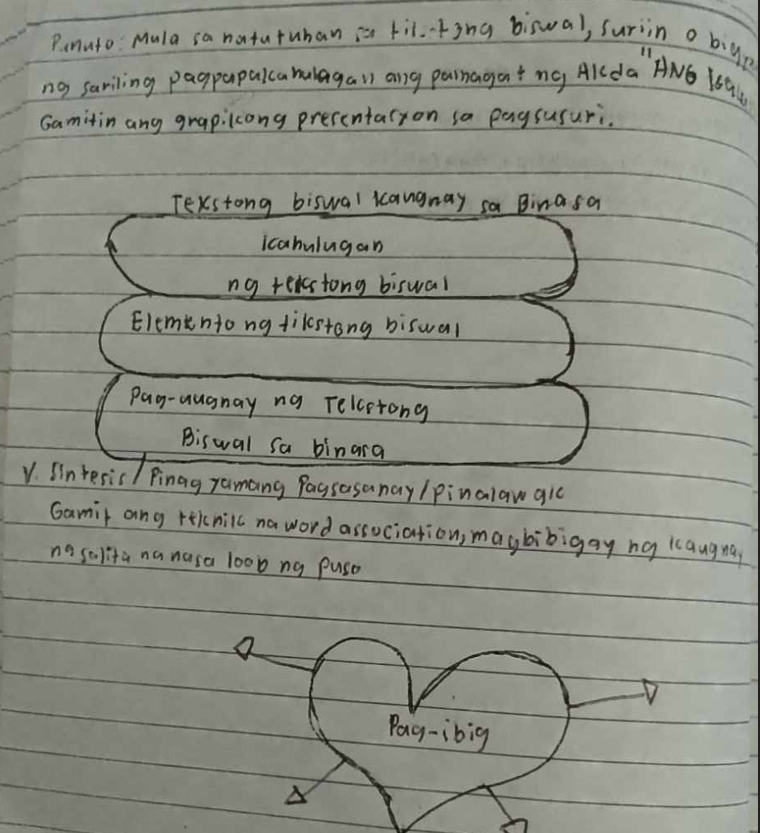 Panuto: Mula sa natutuhan sa biswal, suriin o
ng sariling pagpapakahulagan ang pamagat ng Akda "ANG
Gamitin ang grapikong presentasyon sa pagsusuri.
Tekstong biswal kaugnay sa Binasa
kahulugan
ng tekstong biswal
Elemento ng tikstong biswal
Pag-uugnay ng Tekstong
Biswal sa binasa
V. Sintesis/Pinagyamang Pagsasanay/pinalawak
Gamit ang teknik na word association, magbibigay ng kaugnay
na salita na nasa loob ng puso
Pag-ibig